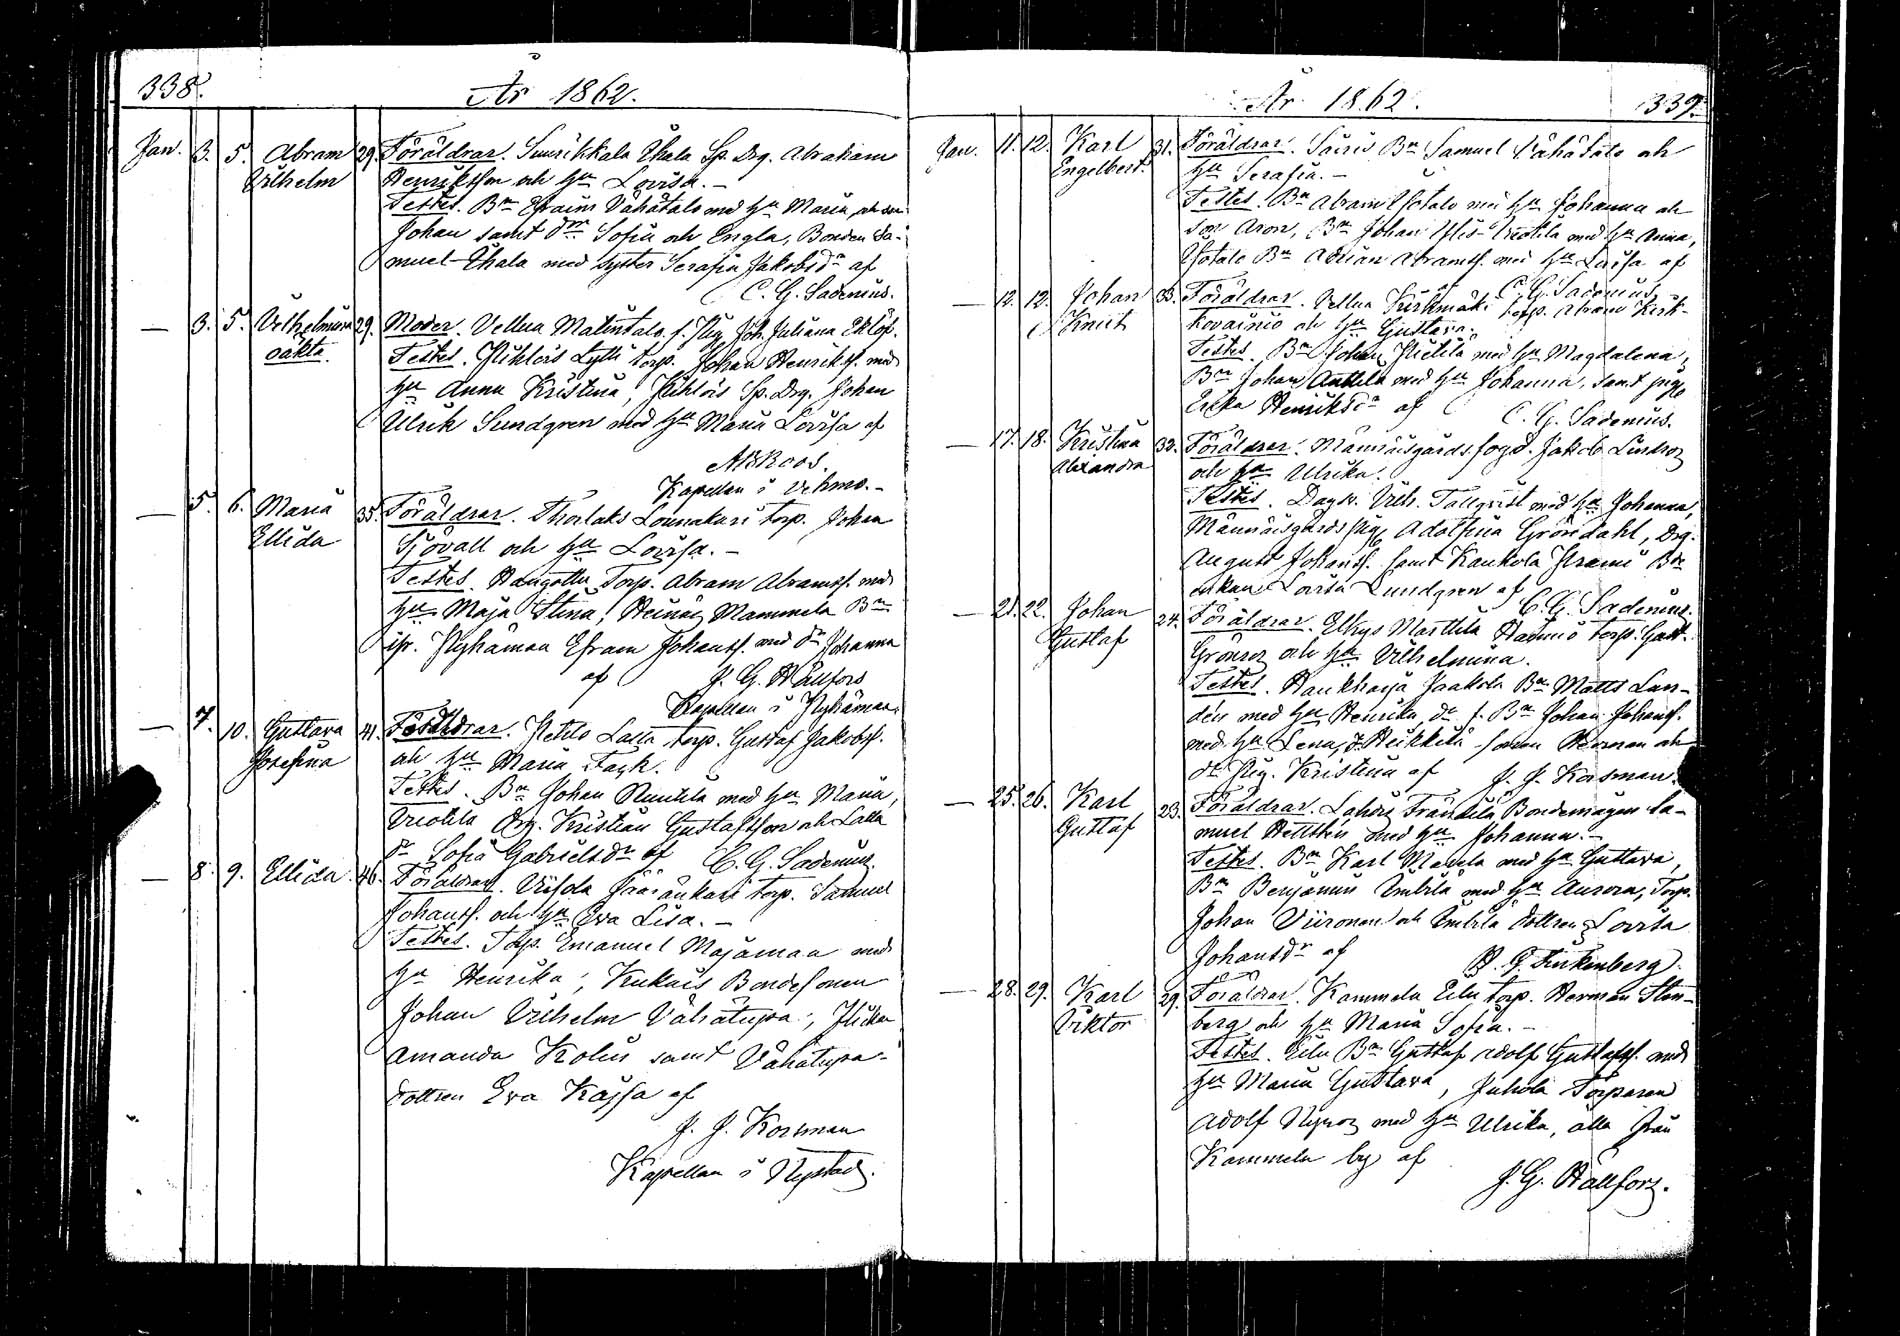 338.
År 1862.
Jan. 3. 5. Abram 29. Föräldrar. Suurikkala Ehala Sp. Drg. Abraham
Vilhelm Henriksson och hu Lovisa. –
Testes. Bn Efraim Vähätalo med hu Maria och son
Johan samt dr Sofia och Engla, Bonden Sa-
muel Ehala med syster Serafia Jakobsdr af
C. G. Sadenius.
— 3. 5. Vilhelmina 29. Moder. Vellua Matintalo f. Pig. Joh. Juliana Eklöf.
oäkta. Testes. Pihlois Lytti torp. Johan Henriks. med
hu Anna Kristina, Pihlois Sp. Drg. Johan
Ulrik Sundgren med hu Maria Lovisa af
Roos.
Kapellan i Vehmo. –
— 5. 6. Maria 35. Föräldrar. Thorlaks Lounakari torp. Johan
Ellida Sjövall och hu Lovisa. –
Testes. Haugottu Torp. Abram Abramss. med
hu Maja Stina, Heinäis Mammela Bn
i Nyhämen Efraim Johanss. med dr Johanna
af J. G. Hällfors
Kapellan i Nyhämen.
— 7. 10. Gustava 41. Föräldrar. Letilo Lalla torp. Gustaf Jakobss.
Josefina och hu Maria Fagh.
Testes. Bn Johan Runtila med hu Maria,
Vriotila Drg. Kristian Gustafsson och Lalla
dr Sofia Gabrielsdr af C. G. Sadenius.
— 8. 9. Ellida 46. Föräldrar. Jääränkari torp. Samuel
Johanss. och hu Eva Lisa. –
Testes. Torp. Emanuel Majamaa med
hu Henrika, Kukais Bondesonen
Johan Vilhelm Vähätupa, Flickan
Amanda Kolin samt Vähätupa-
dottren Eva Kajsa af
J. J. Korsman
Kapellan i Nystad.
År 1862.
339.
Jan. 11. 12. Karl 31. Föräldrar. Säiris Bn Samuel Vähätalo och
Engelbert. hu Serafia. –
Testes. Bn Abram Isotalo med hu Johanna och
son Aron, Bn Johan Ylis-Vriotila med hu Anna,
Isotalo Bn Adrian Abramss. med hu Lovisa af
C. G. Sadenius.
— 12. 12. Johan 33. Föräldrar. Vellua Kirkmäki torp. Abram Kirk-
Knut kovainio och hu Gustava.
Testes. Bn Johan Pietilä med hu Magdalena,
Bn Johan Anttila med hu Johanna, samt piga
Erika Henriksdr af C. G. Sadenius.
— 17. 18. Kristina 32. Föräldrar. Männäisgårds fogd. Jakob Lindroz
Alexandra och hu Ulrika.
Testes. Dagsv. Vilh. Tallqvist med hu Johanna,
Männäisgårds pig. Adolfina Gröndahl, Drg.
August Johanss. samt Kaukola Prami Bde
enkan Lovisa Lundgren af C. G. Sadenius.
— 21. 22. Johan 24. Föräldrar. Elkys Marttila Hannio torp. Gust.
Gustaf Grönroz och hu Vilhelmina.
Testes. Haukharja Jaakola Bn Matts Lan-
dén med hu Henrika, do f. Bn Johan Johanss.
med hu Lena, Heikkilä sonen Herman och
do Pig. Kristina af J. J. Korsman.
— 25. 26. Karl 23. Föräldrar. Lahdis Fräntilä Bondemågen Sa-
Gustaf muel Hellstén med hu Johanna. –
Testes. Bn Karl Manla med hu Gustava,
Bn Benjamin Umbila med hu Aurora, Torp.
Johan Viironen och Umbila dottren Lovisa
Johansdr af Finkenberg.
— 28. 29. Karl 29. Föräldrar. Kammela Eilu torp. Herman Sten-
Viktor berg och hu Maria Sofia. –
Testes. Eilu Bn Gustaf Adolf Gustafss. med
hu Maria Gustava, Juhola Torparen
Adolf Nyroz med hu Ulrika, alla från
Kammela by af
J. G. Hällforz.